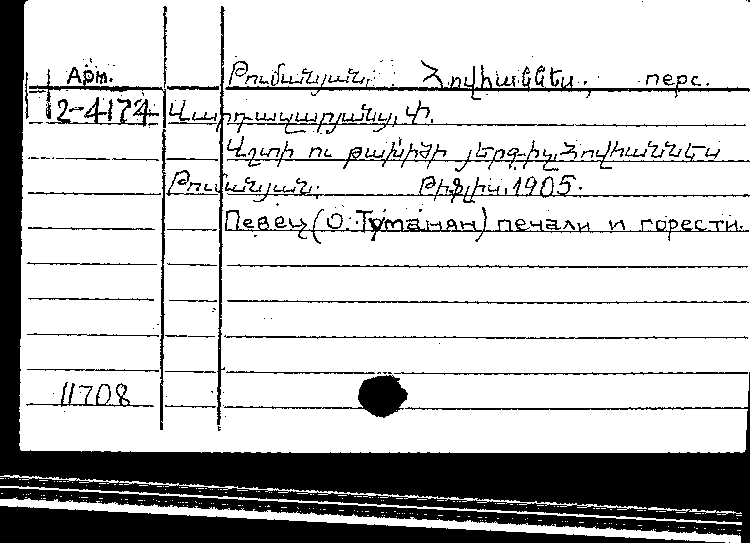 Арт. Թումանյան, Հովհաննես, перс.
2-4174 Վարդապարյանց, Փ.
Վշտի ու թախիծի յերգիչ Հովհաննես
Թումանյան. Թիֆլիս, 1905.
Певец (О. Туманян) печали и горести.
11708